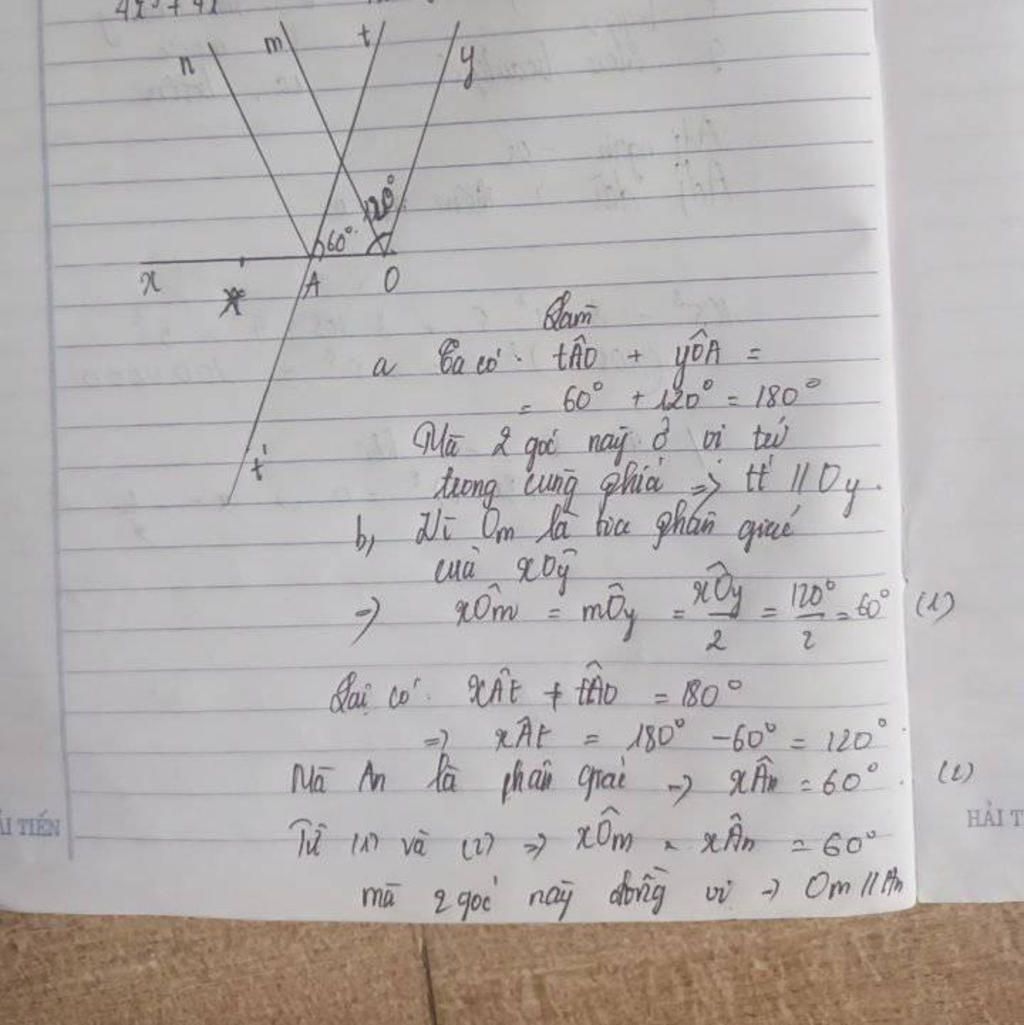 4x³ + 4x
n m t y
120°
60°
x A O
t'
Làm
a Ta có: tÂO + yÔA =
= 60° + 120° = 180°
Mà 2 góc này ở vị trí
trong cùng phía => tt' // Oy.
b, Vì Om là tia phân giác
của xOy
=> xÔm = mÔy = xÔy/2 = 120°/2 = 60° (1)
Lại có: xÂt + tÂO = 180°
=> xÂt = 180° - 60° = 120°
Mà An là phân giác -> xÂn = 60°. (2)
Từ (1) và (2) => xÔm = xÂn = 60°
mà 2 góc này đồng vị -> Om // An
ẢI TIẾN
HẢI T